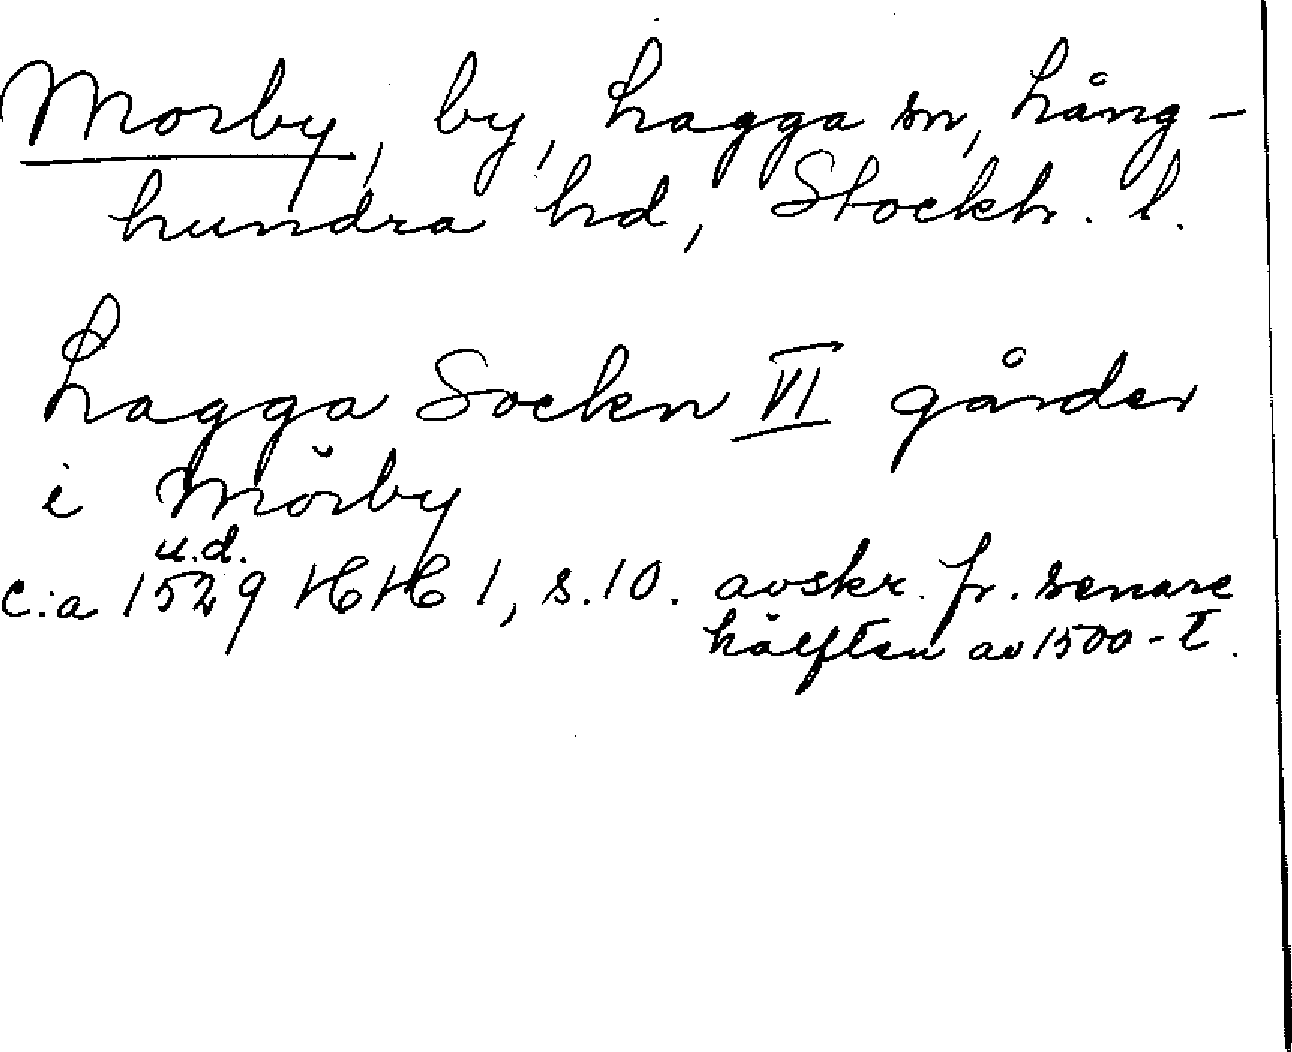 Morby, by, Lagga sn, Lång-
hundra hd, Stockh. l.
Lagga Sockn VI gårder
i Mŏrby
u.d.
c:a 1529 HH 1, s. 10. avskr. fr. senare
hälften av 1500-t.